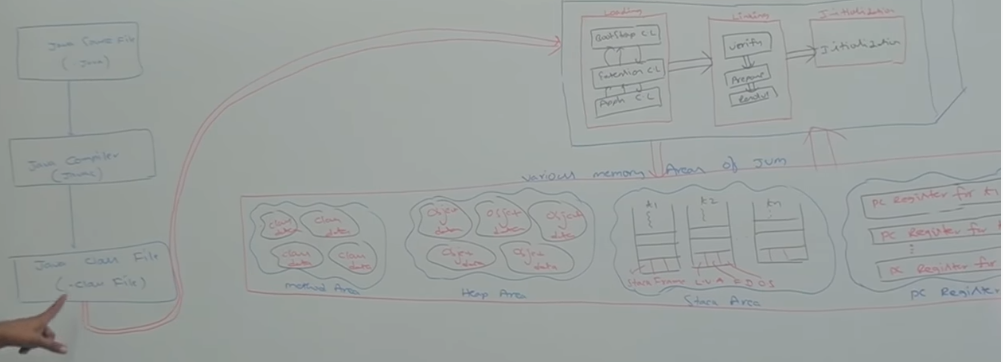 Java Source File
(.java)
Java Compiler
(Javac)
Java Class File
(.class File)
Loading
Bootstrap CL
Extention CL
Appln CL
Linking
verify
Prepare
Initialization
Initialization
various memory Areas of JVM
class data
class data
class data
class data
method Area
Object data
Object data
Object data
Object data
Object data
Heap Area
t1
t2
tn
Stack Frame
Stack Area
PC Register for t1
PC Register for
PC Register for
PC Register